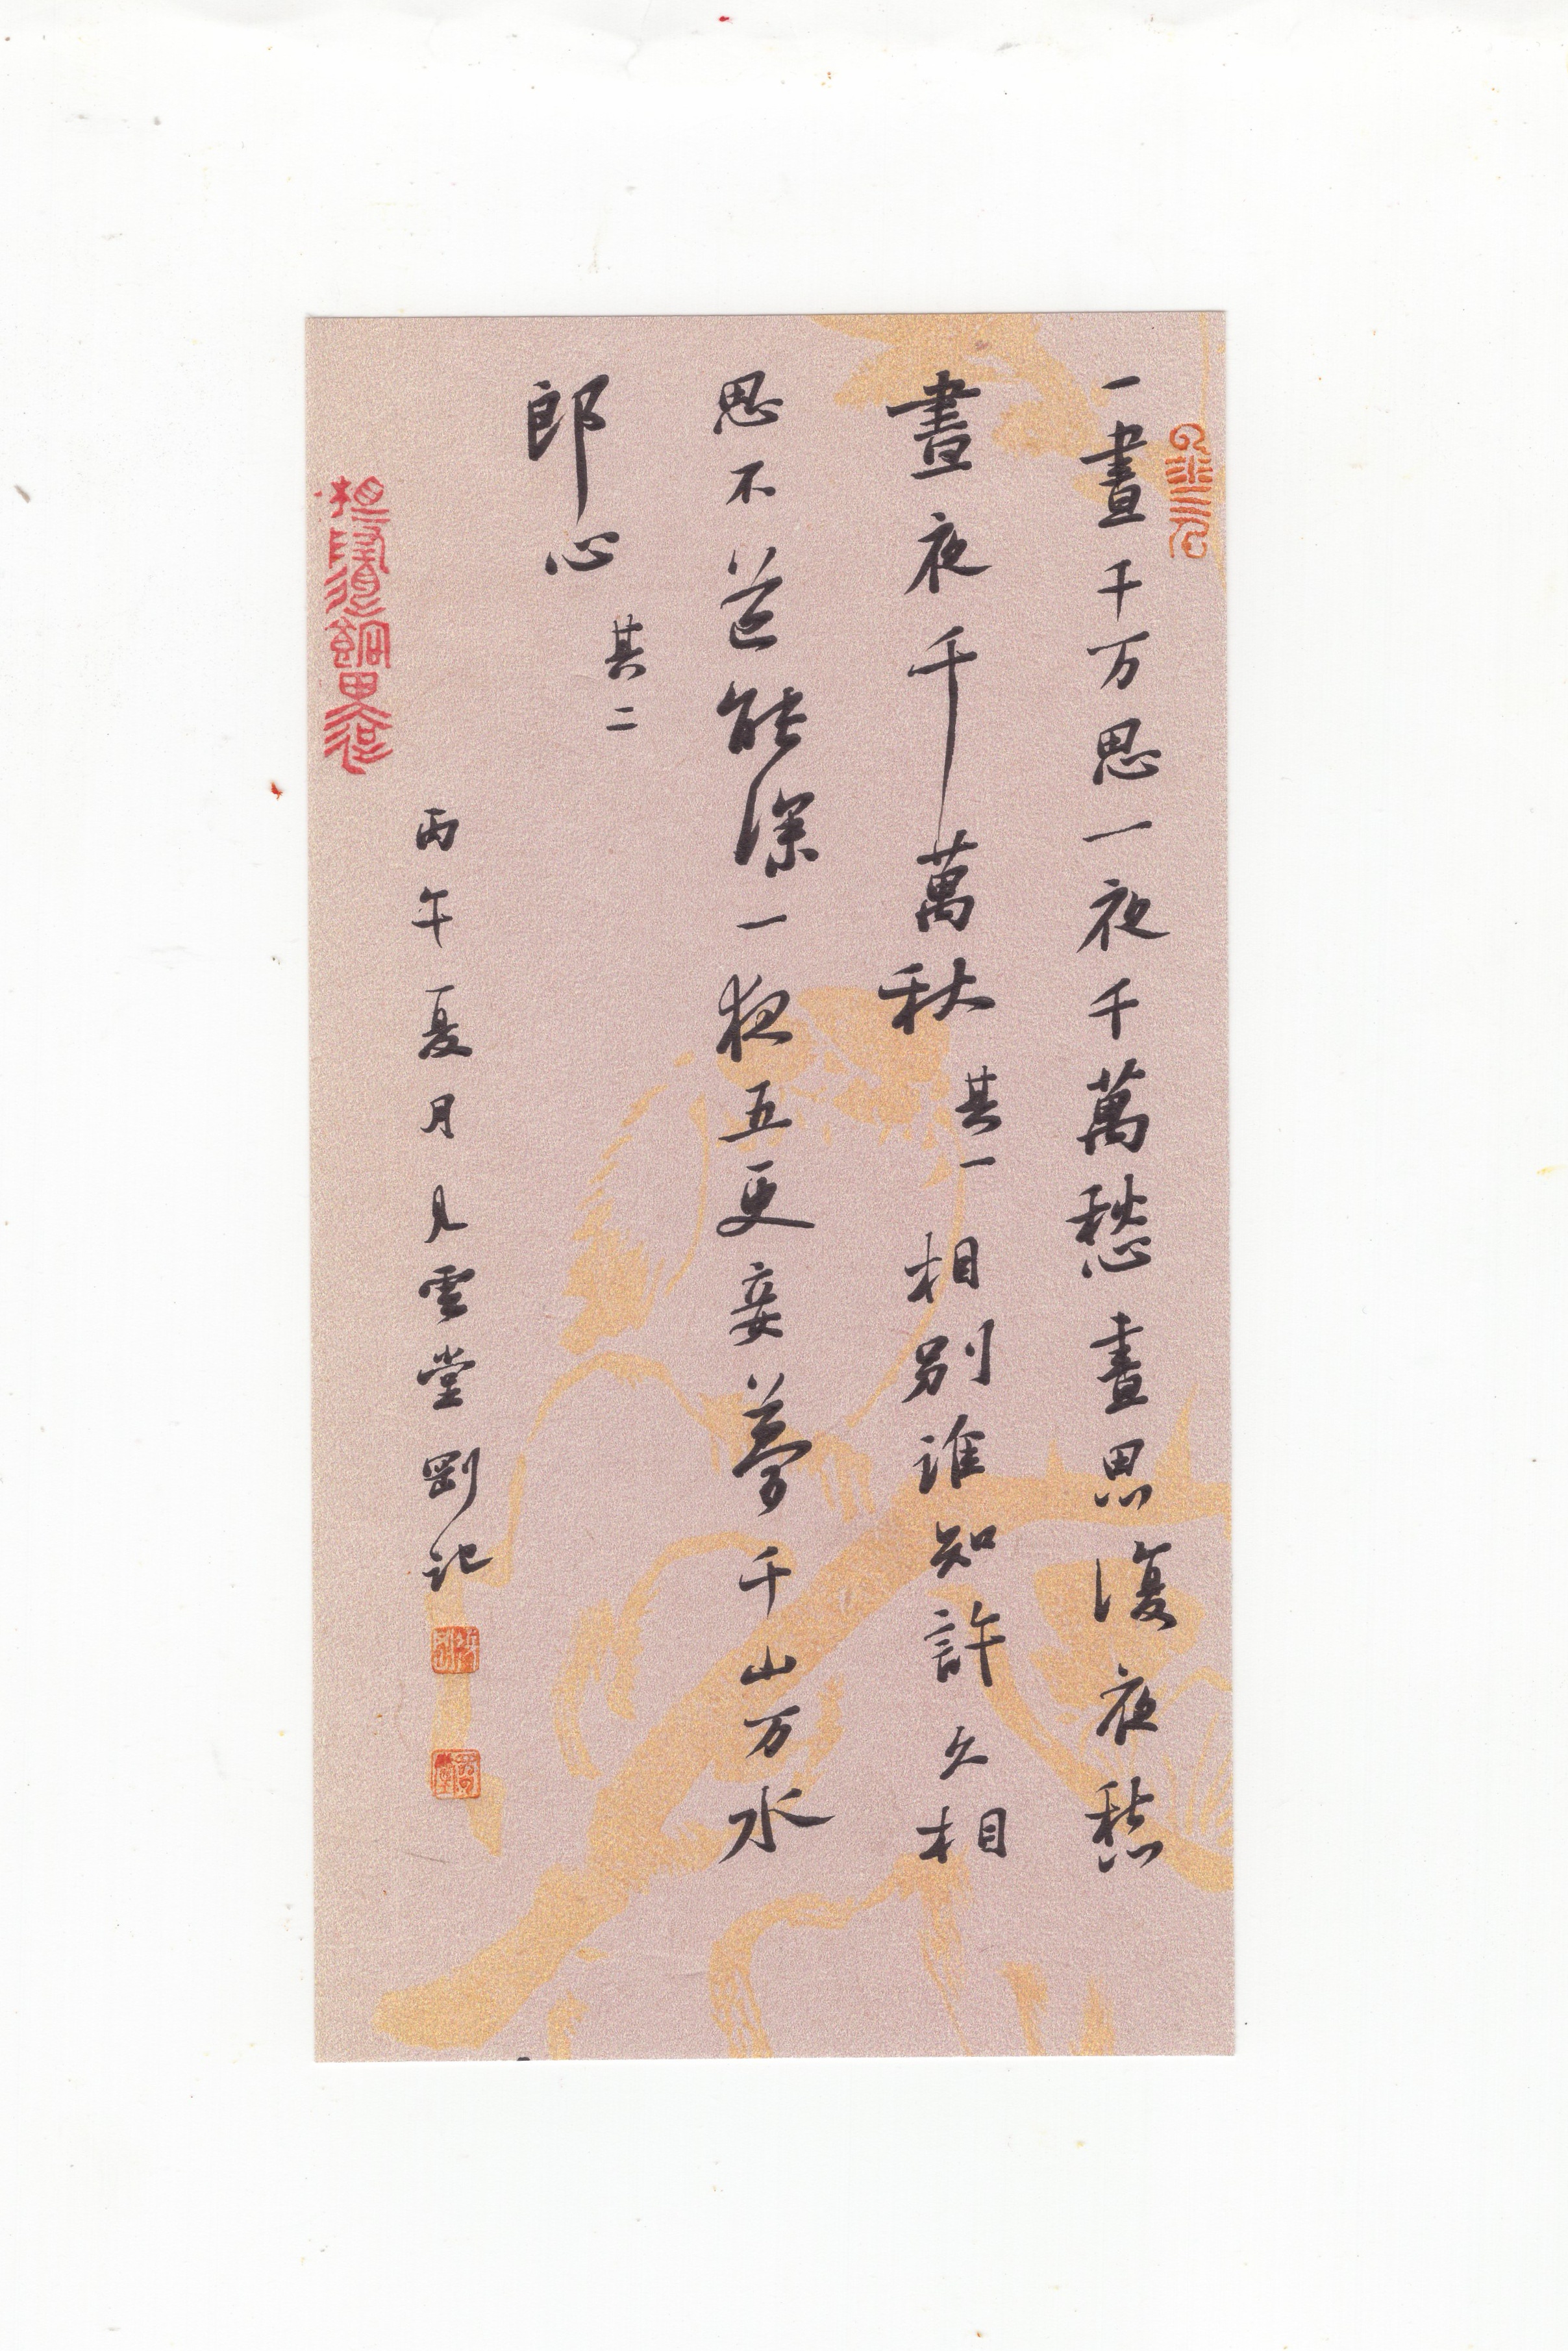 一晝千万思一夜千萬愁晝思復夜愁
晝夜千萬秋 其一 相別誰知許久相
思不道能深一夜五更妾夢千山万水
郎心 其二
丙午夏月雲堂剛記